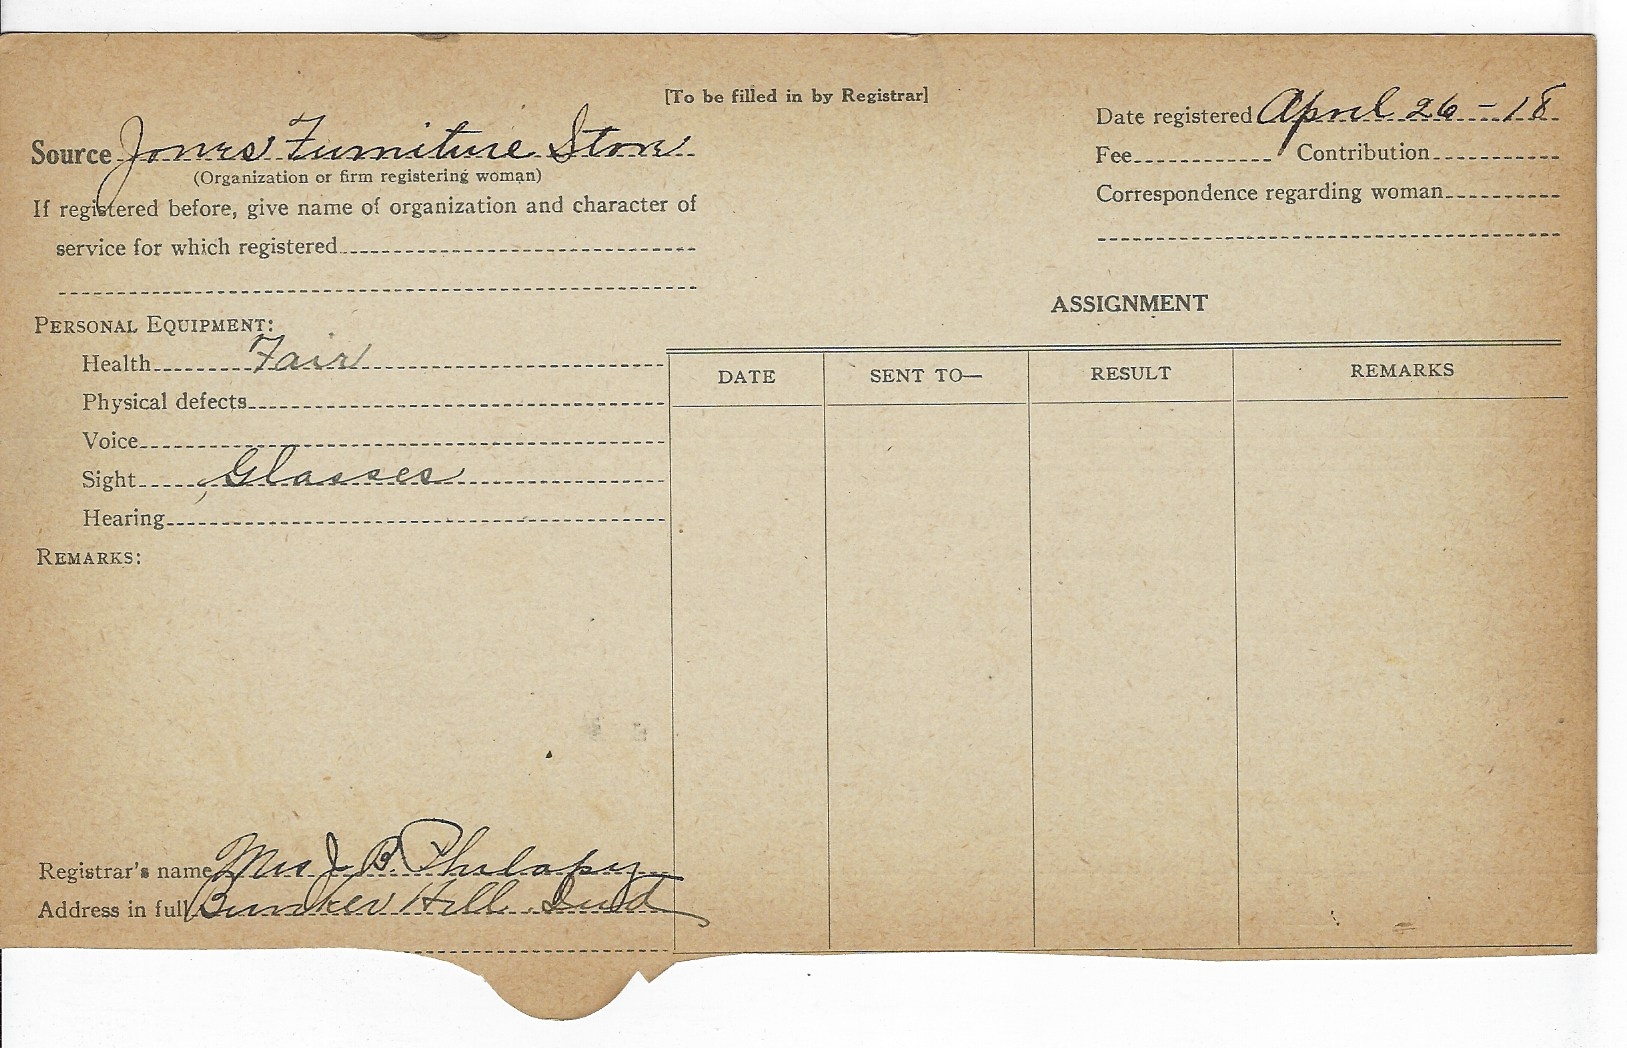 [To be filled in by Registrar]
Source Jones Furniture Store
(Organization or firm registering woman)
If registered before, give name of organization and character of
service for which registered
Date registered April 26-18
Fee Contribution
Correspondence regarding woman
PERSONAL EQUIPMENT:
Health Fair
Physical defects
Voice
Sight Glasses
Hearing
REMARKS:
ASSIGNMENT
DATE SENT TO— RESULT REMARKS
Registrar's name Mrs J. B. Philapy
Address in full Bunker Hill Ind